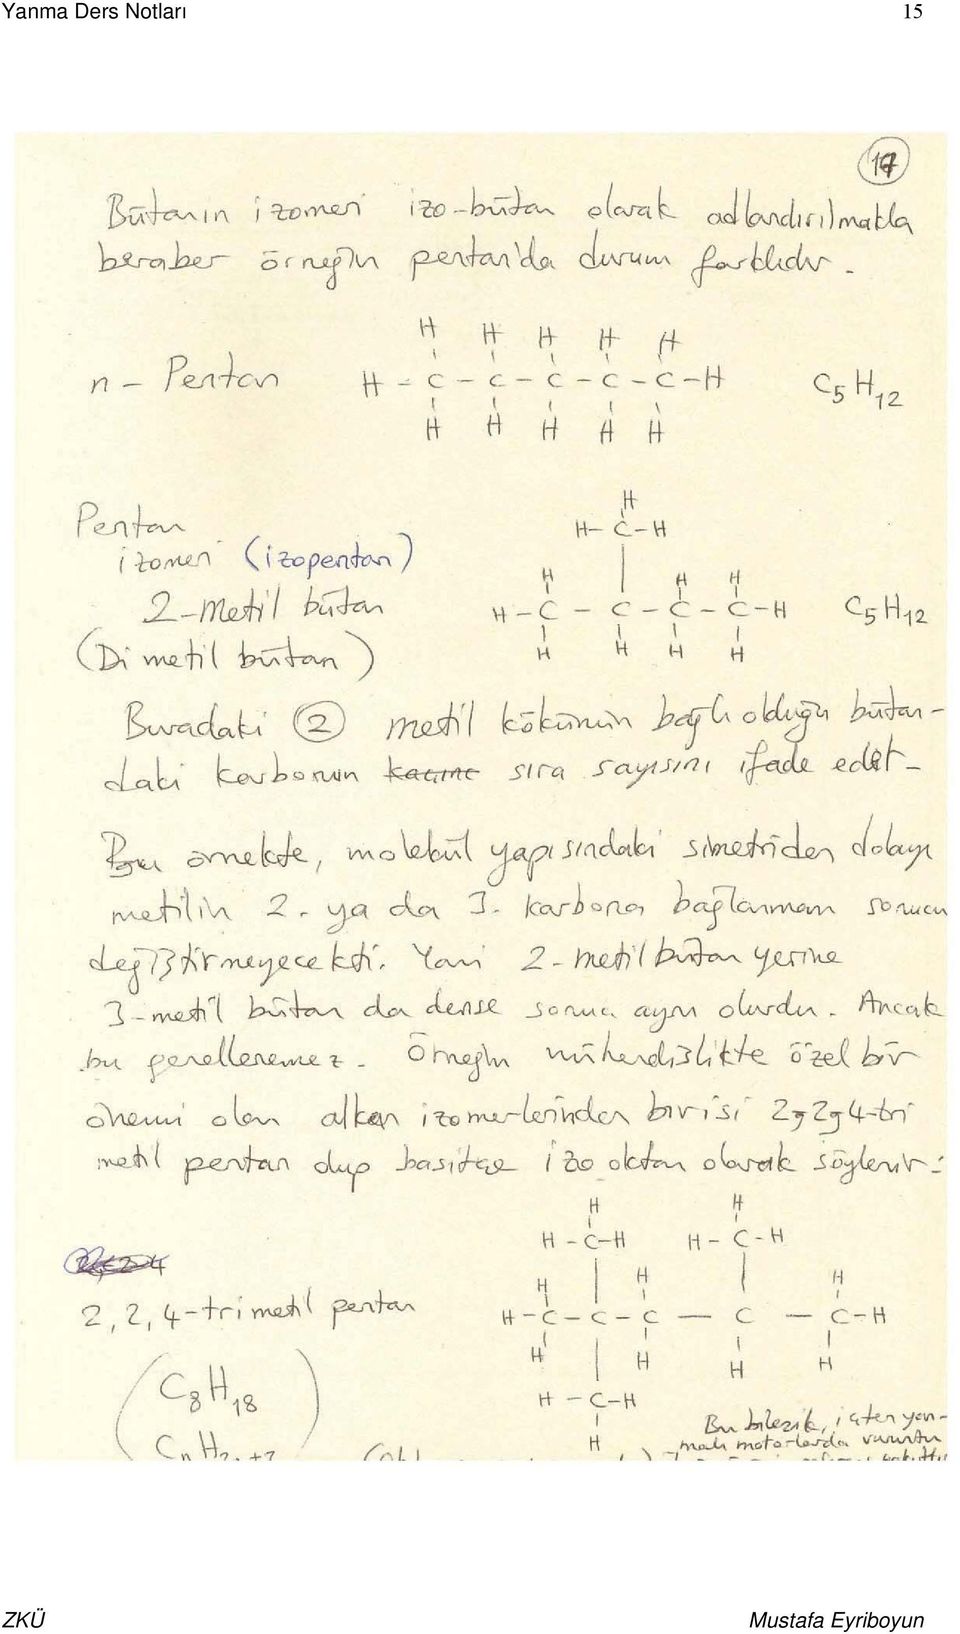 Yanma Ders Notları 15
17
Bütanın izomeri izo-bütan olarak adlandırılmakla
beraber örneğin pentan'da durum farklıdır.
H H H H H
n - Pentan H - C - C - C - C - C - H C5H12
H H H H H
H
Pentan H - C - H
izomeri (izopentan)
H H H
2-Metil bütan H - C - C - C - C - H C5H12
(Di metil bütan) H H H H
Buradaki 2 metil kökünün bağlı olduğu bütan-
daki karbonun kaçıncı sıra sayısını ifade eder.
Bu örnekte, molekül yapısındaki simetriden dolayı
metilin 2. ya da 3. karbona bağlanması sonucu
değiştirmeyecekti. Yani 2-metil bütan yerine
3-metil bütan da dense sonuç aynı olurdu. Ancak
bu genellenemez. Örneğin mühendislikte özel bir
önemi olan alkan izomerlerinden birisi 2,2,4-tri
metil pentan olup basitçe izo oktan olarak söylenir:
H H
H - C - H H - C - H
H H H
2,2,4-trimetil pentan H - C - C - C - C - C - H
H H H H
(C8H18) H - C - H
H
Bu bileşik, içten yan-
malı motorlarda vuruntu
CnH2n+2
ZKÜ Mustafa Eyriboyun